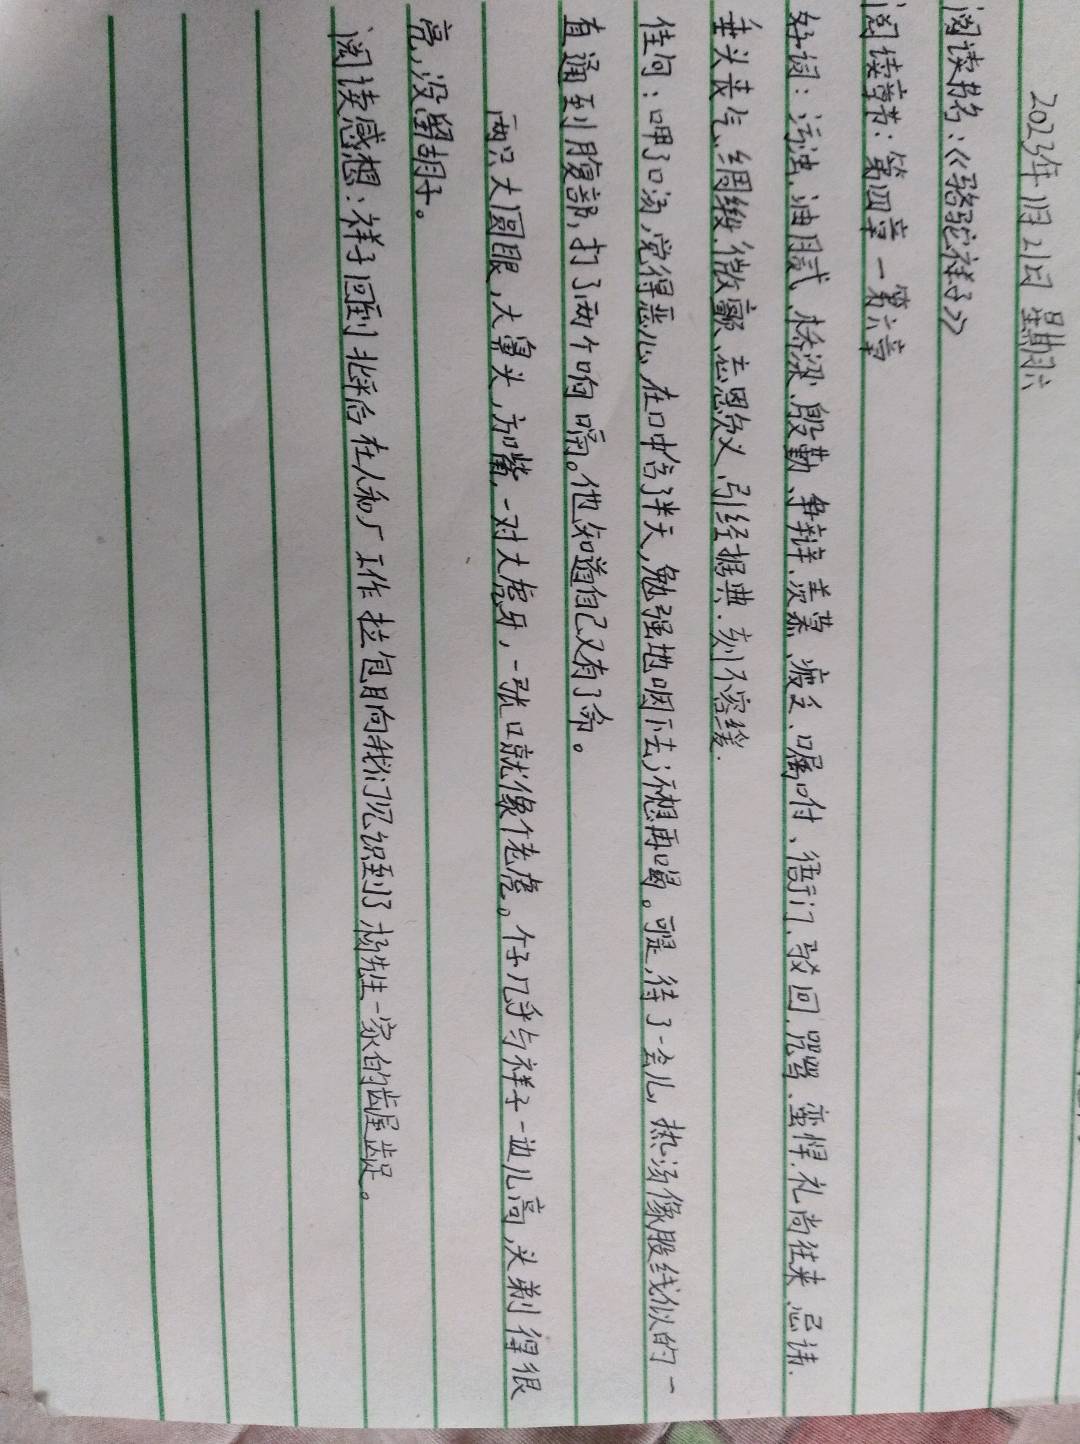 2023年1月21日 星期六
阅读书名:《骆驼祥子》
阅读章节:第四章—第六章
好词:污浊、油腻、桥梁、殷勤、争辩、羡慕、疲乏、嘱咐、衙门、驳回、咒骂、蛮悍、礼尚往来、忌讳、
垂头丧气、绸缎、微颤、忘恩负义、引经据典、刻不容缓.
佳句:呷了口汤,觉得恶心,在口中含了半天,勉强地咽下去;不想再喝。可是,待了一会儿,热汤像股线似的一
直通到腹部,打了两个响嗝。他知道自己又有了命。
两只大圆眼,大鼻头,方嘴,一对大虎牙,一张口就像个老虎。个子几乎与祥子一边儿高,头剃得很
亮,没留胡子。
阅读感想:祥子回到北平后在人和厂工作拉包月向我们见识到了杨先生一家的龌龊。